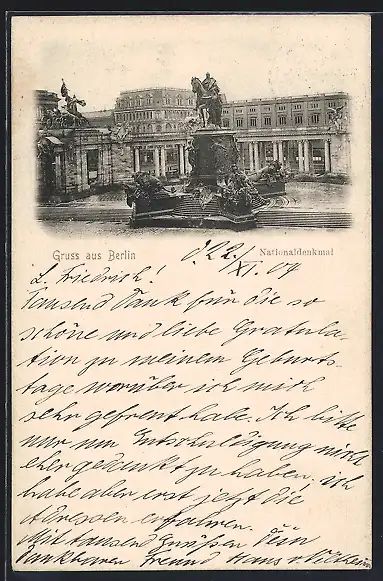 Gruss aus Berlin
Nationaldenkmal
d. 22/XI. 04
L. Friedrich!
Tausend Dank für die so
schöne und liebe Gratula-
tion zu meinem Geburts-
tage worüber ich mich
sehr gefreut habe. Ich bitte
nur um Entschuldigung nicht
eher gedankt zu haben, ich
habe aber erst jetzt die
Adressen erfahren.
Mit tausend Grüßen Dein
dankbarer Freund Hans v. Veltheim